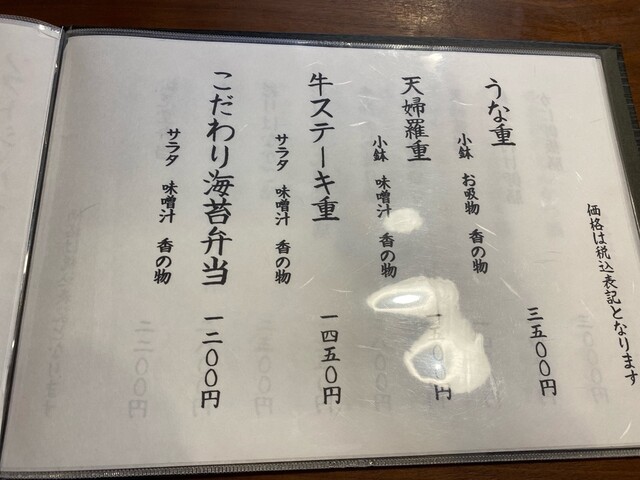 価格は税込表記となります
うな重
小鉢 お吸物 香の物
三五〇〇円
天婦羅重
小鉢 味噌汁 香の物
牛ステーキ重
サラダ 味噌汁 香の物
一四五〇円
こだわり海苔弁当
サラダ 味噌汁 香の物
一二〇〇円